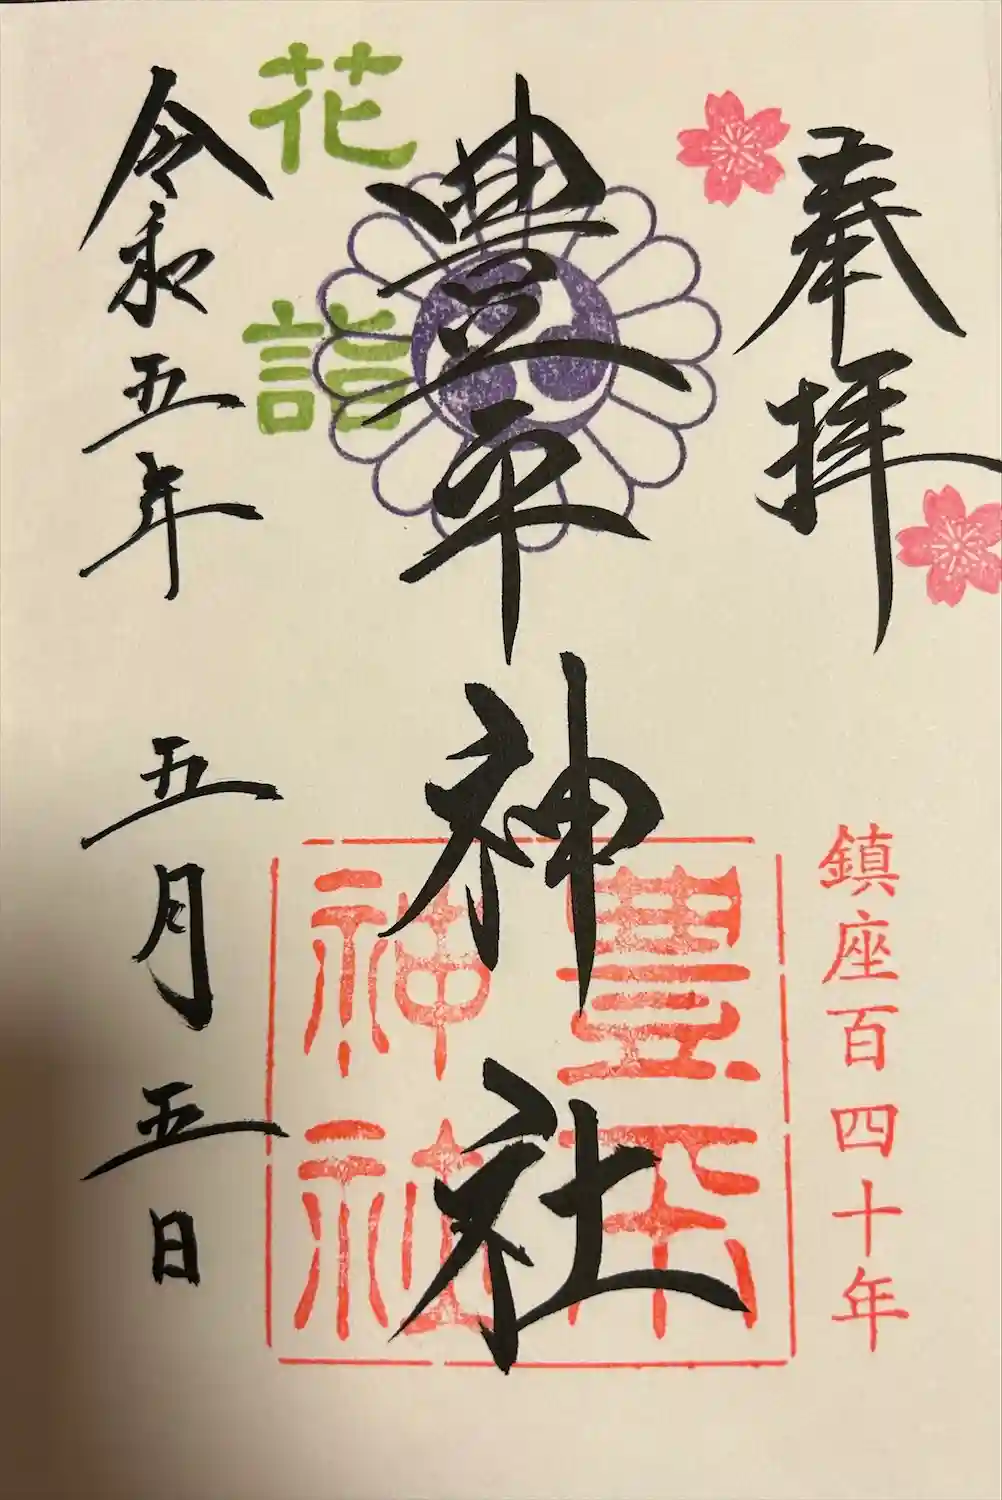 奉拝
鎮座百四十年
豊平神社
豊平
神社
花詣
令和五年 五月 五日